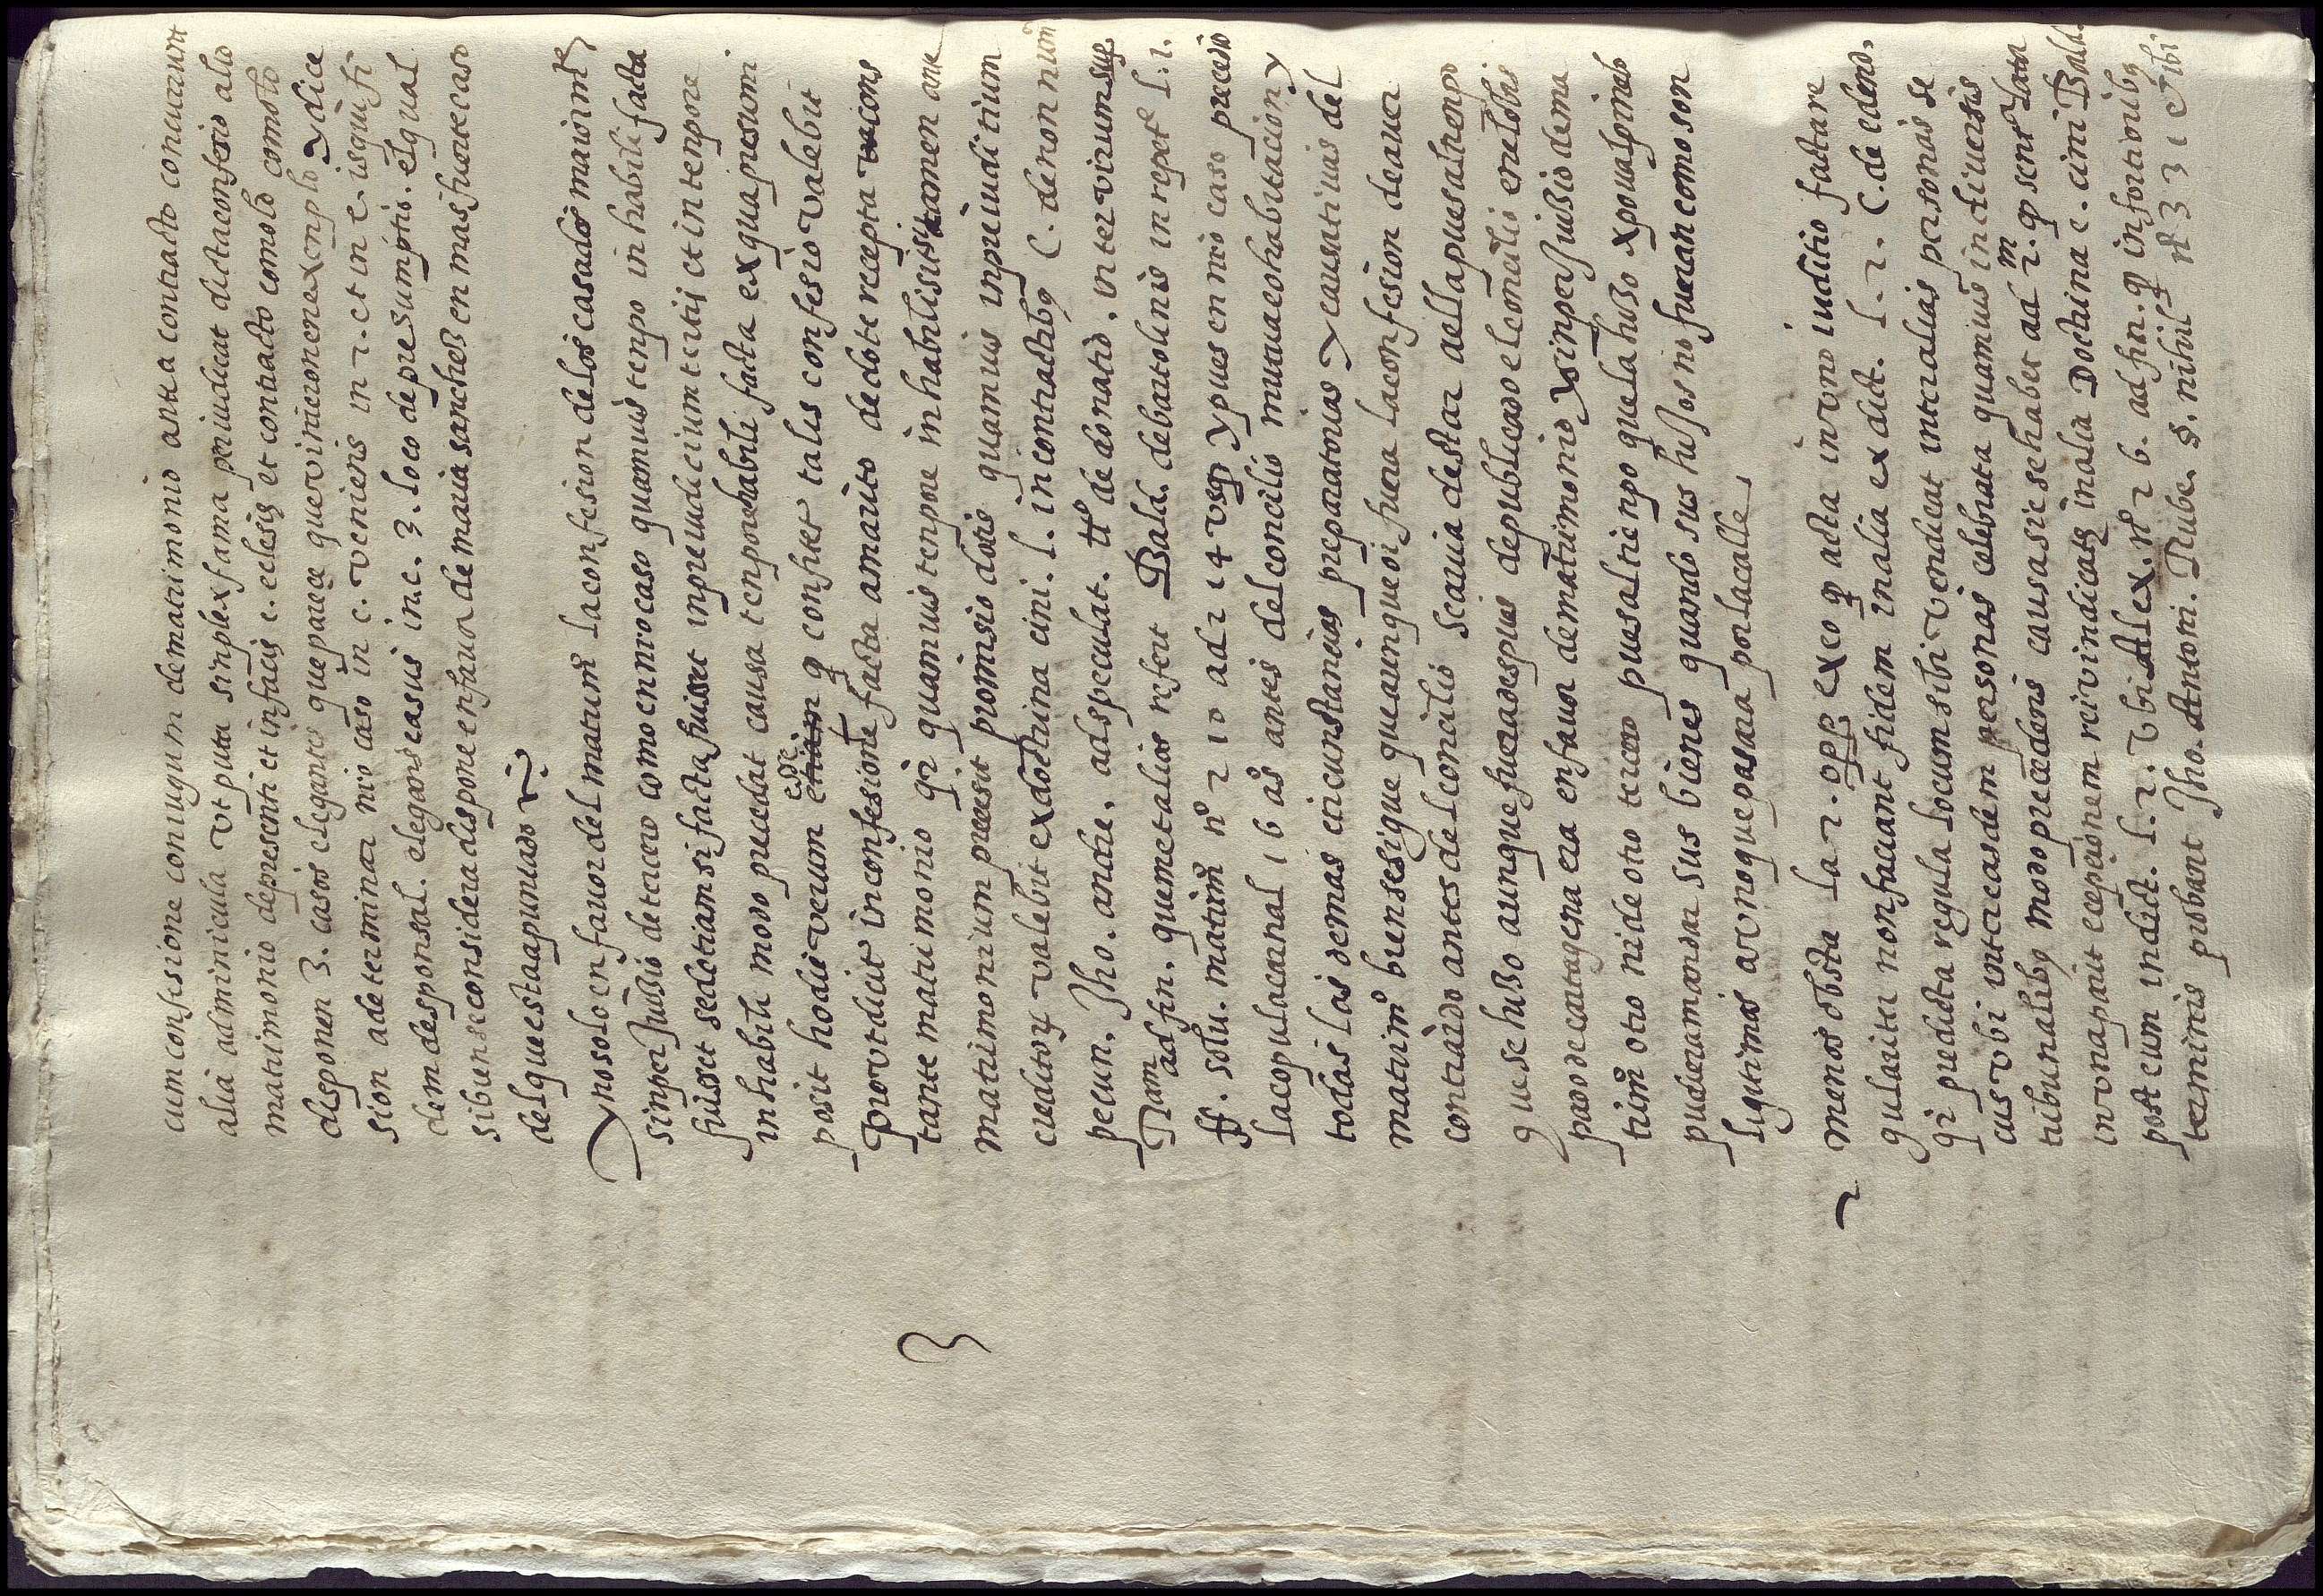 cum confisione coniugum de matrimonio ante a contracto concurrant
alia adminicula vt puta simplex fama preiudicat dicta confesio a lo
matrimonio de presenti et in facie c. eclesię et contracto como lo
disponen 3. casos elegantes que parece que vinieron en exenplo y dice
sion a determinar nro caso in c. veniens in 2. et in c. is qui fi
dem de sponsal. elegans casus in c. 3. loco de presumptio. el qual
si bien se considera dispone en fauor de maria sanchez en mas fuerte caso
del que esta apuntado
Y no solo en fauor del matrimº la confesion de los casados maiormte
sin perjuiªio de tercero como en nro caso quamuis tenpo inhabili facta
fuisset sed etiam si facta fuisset in preiudicium tertij et in tenpore
inhabili modo precedat causa tenpore habile facta ex qua presumi
posit hodie verum esse q confiter talis confesio valebit
prout dicit in confesione facta a marito de dote recepta cons
tante matrimonio q2 quamuis tenpore inhabili sit tamen ante
matrimonium precesit promisio dotis quamuis in preiuditium
creditorꝝ valebit ex doctrina cini. l. in contractibꝰ C. de non num
pecun. Jho. andre. ad speculat. ttº de donatio. inter virum
Nam ad fin. que metalios refert Bald. de bartolinis in repetº l. 1.
ff. solu. matrimº nº 210 ad 214 vsqꝫ y pues en nro caso precedio
la copula carnal 16 aºs antes del concilio mutua cohabitacion y
todas las demas circunstancias preparatorias y causatiuas del
matrimº bien se sigue que aunque oi fuera la confesion de auer
contraido antes del concilio se auia de star a ella pues al tienpo
que se huªo aunque fuera despues de publicado el concilio era lobis
pado de cartagena era en fauor de matrimonio y sin perjuiªio de ma
trimº otro ni de otro tercero pues al tienpo que la huªo xpoual pines
pudiera mandar sus bienes quando sus hijos no fueran como son
ligitimos a vno que pasara por la calle
2 menos obsta la 2. opp ex eo q acta in vno iuditio factare
gulariter non faciunt fidem in alia ex dict. l. 2. C. de edend.
q2 predicta regula locum sibi vendicat inter alias personas se
cus vbi inter easdem personas celebrata quamuis in diuersis
tribunalibꝰ modo precedens causa sic se habet ad 2m. qꝫ sent lata
in vna parit exepcionem rei vindicatę in alia Doctrina e. cini Bald.
post eum in dict. l. 2. vbi Alex. nº 26. ad fin. q in fortioribꝰ
terminis probant Jho. Antoni. Rube. §. nihil nº 331 et ibi
3